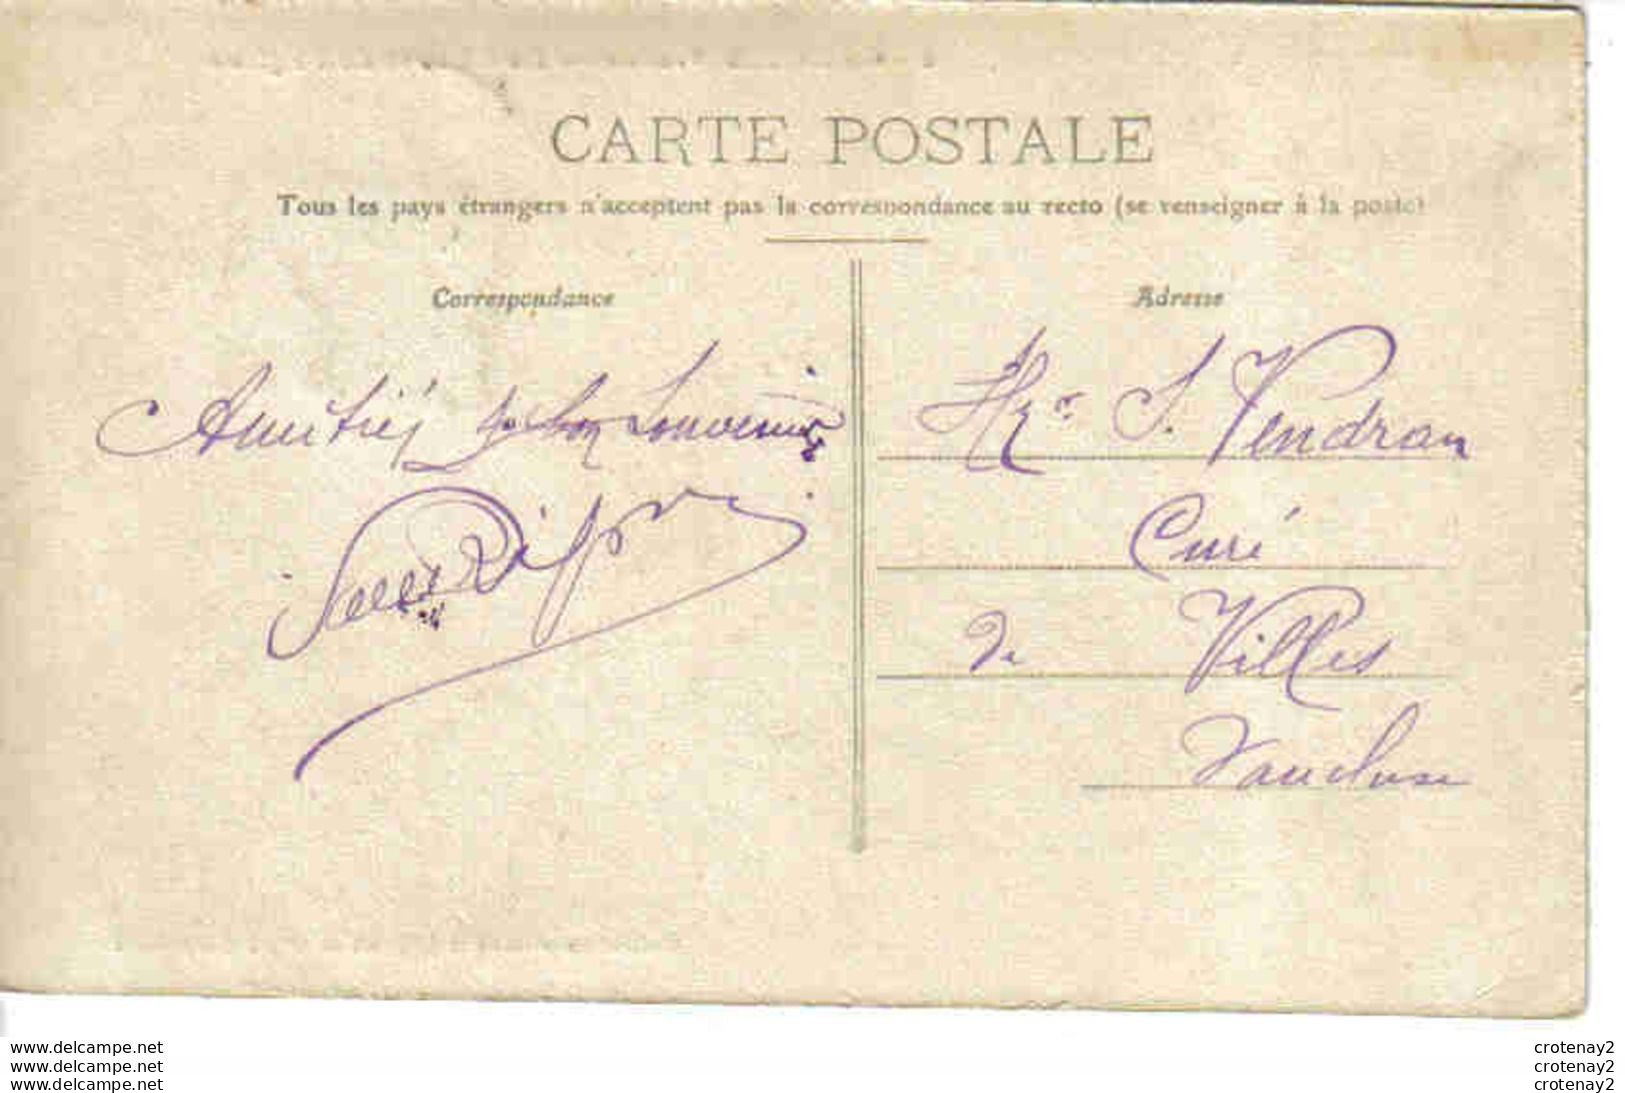 CARTE POSTALE
Tous les pays étrangers n'acceptent pas la correspondance au recto (se renseigner à la poste)
Correspondance
Amitiés bon Souvenir
Adresse
Mr S. Vendran
Curé
de Villes
Vaucluse
www.delcampe.net
www.delcampe.net
www.delcampe.net
crotenay2
crotenay2
crotenay2